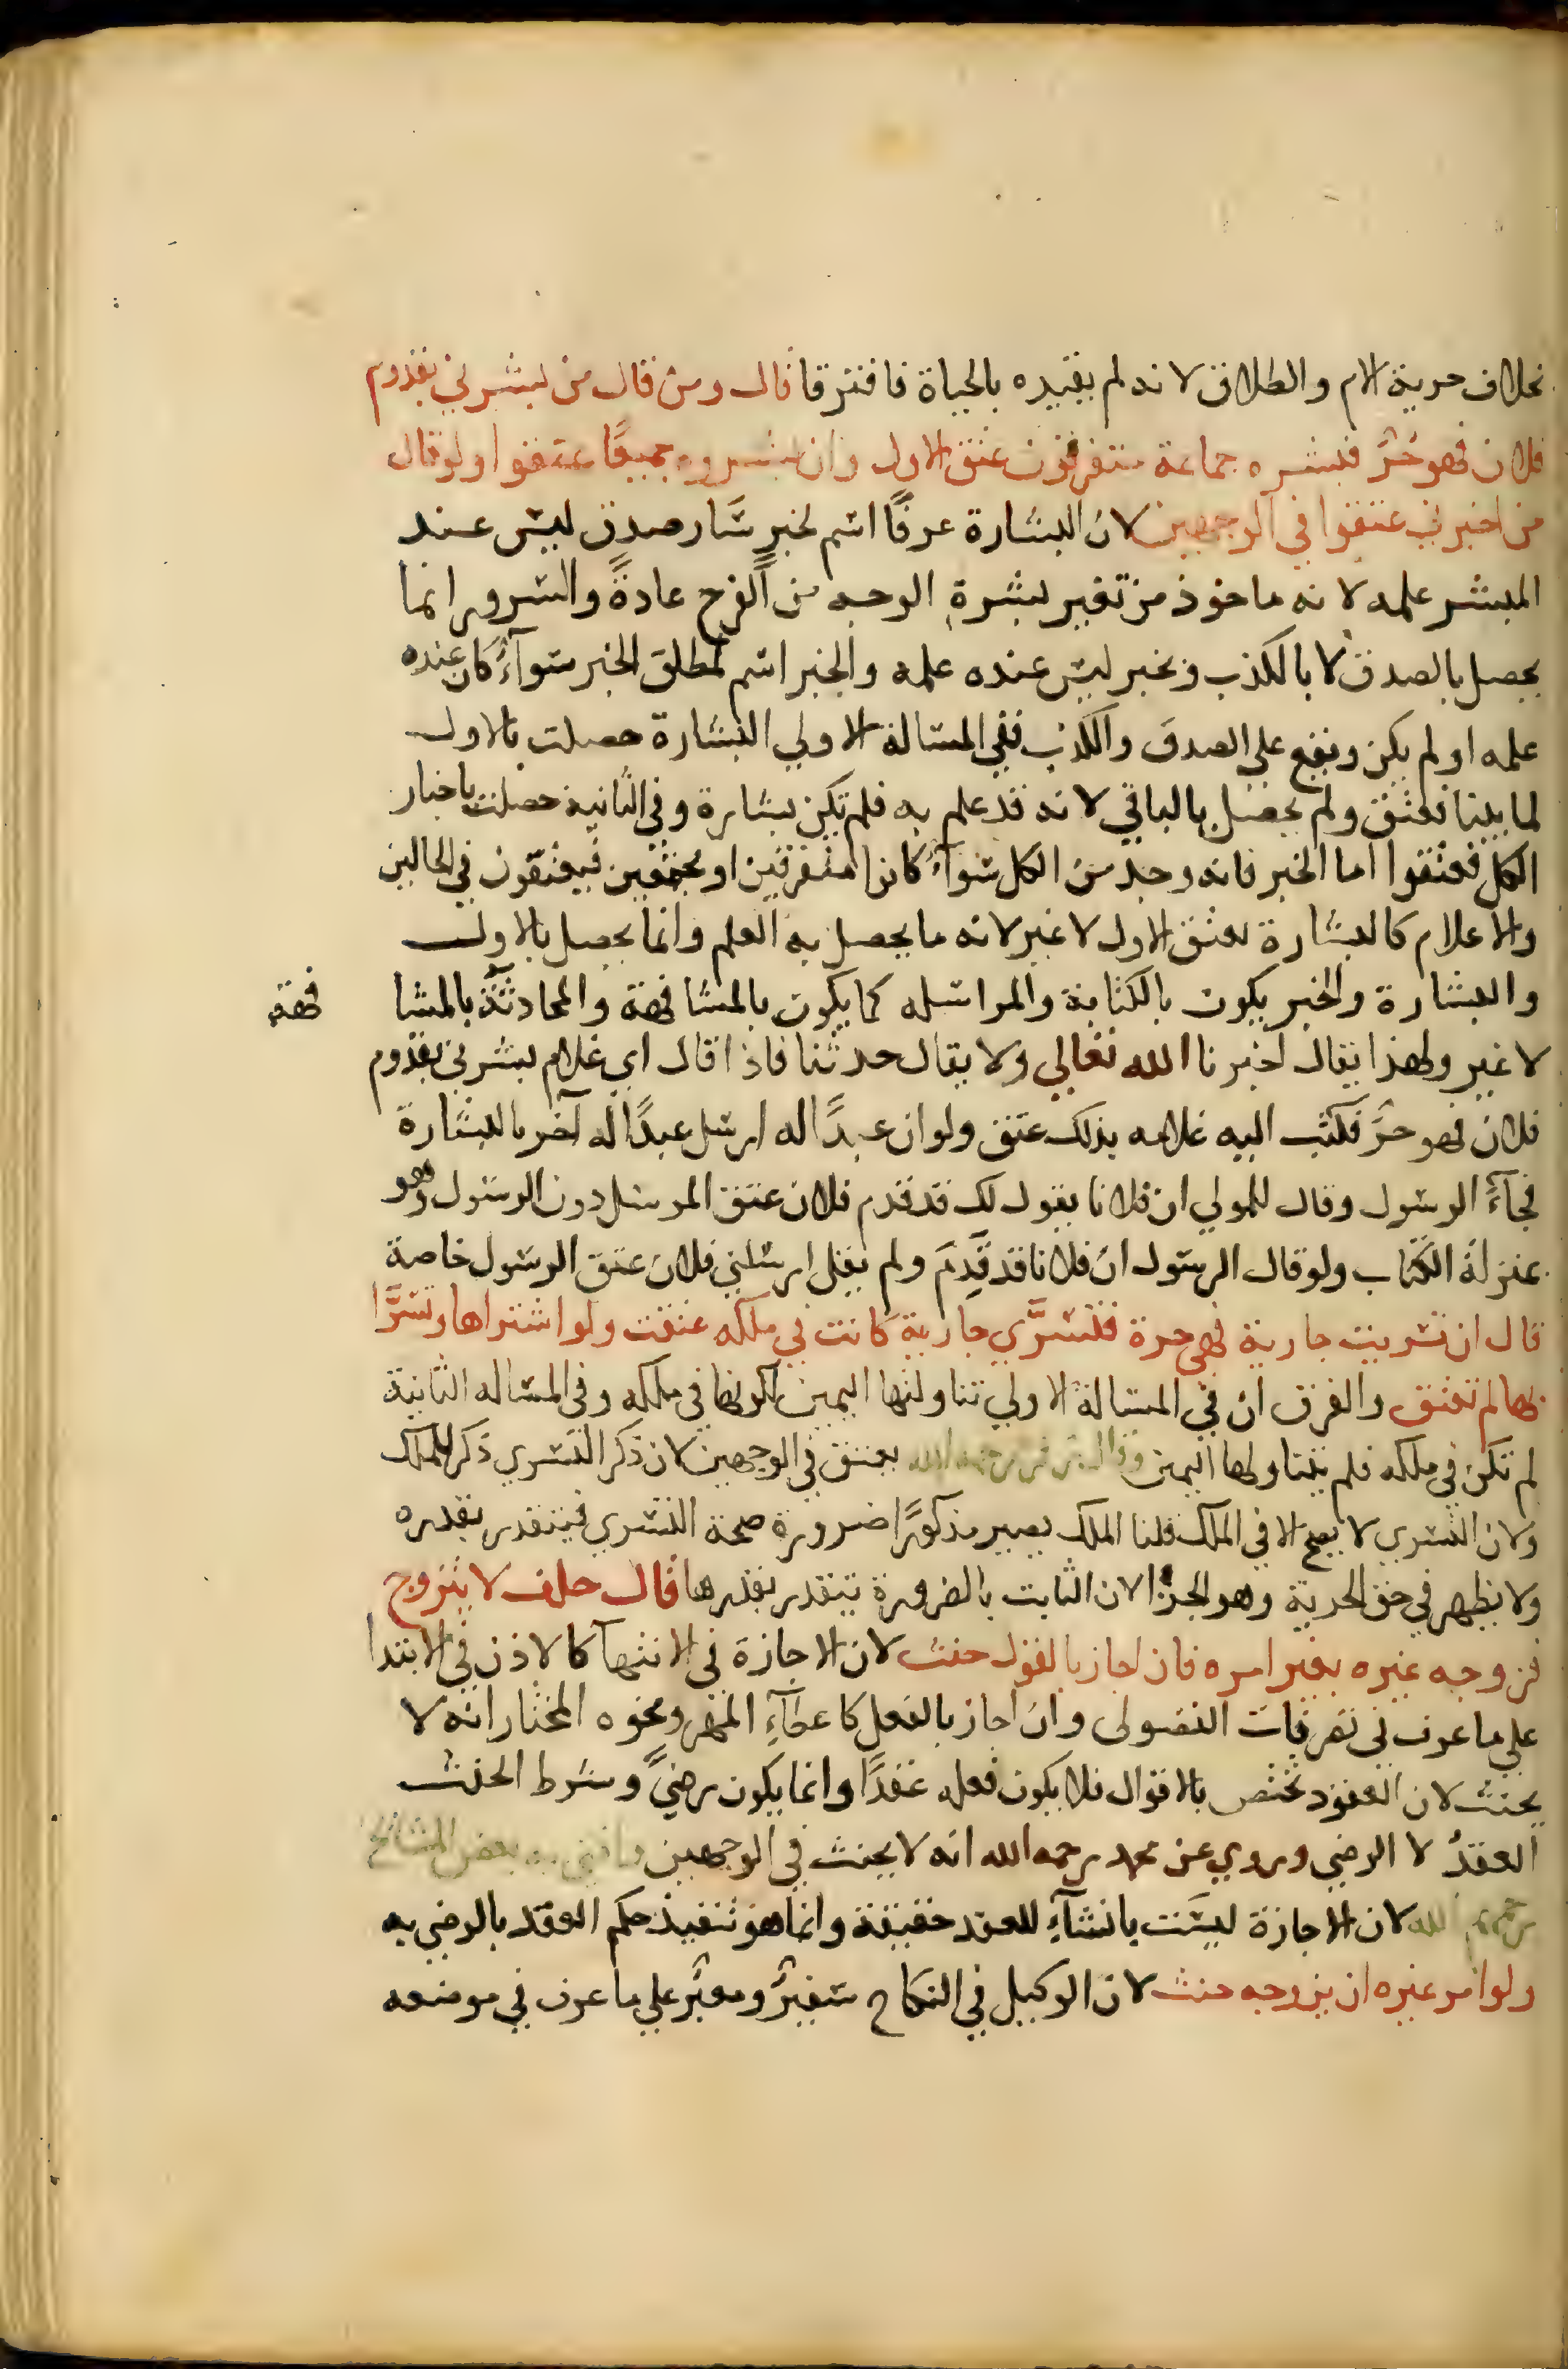 بخلاف حرية الام والطلاق لانه لم يقيده بالحياة فافترقا قال ومن قال من بشرني بقدوم
فلان فهو حُرٌّ فبشره جماعة متفرقون عتق الاول وان بشروه جميعًا عتقوا ولو قال
من اخبرني عتقوا في الوجهين لان البشارة عرفًا اسم لخبرٍ سَار صدق ليس عند
المبشر علمه لانه ماخوذ من تغير بشرة الوجه من الفرح عادةً والسرور انما
يحصل بالصدق لا بالكذب وبخبر ليس عنده علمه والخبر اسم لمطلق الخبر سوآءٌ كان عنده
علمه او لم يكن ويقع على الصدق والكذب ففي المسالة الاولي البشارة حصلت بالاول
لما بينا فعتق ولم يحصل بالباقي لانه قد علم به فلم تكن بشارة وفي الثانية حصلت باخبار
الكل فعتقوا اما الخبر فانه وجد من الكل سوآءٌ كانوا متفرقين او مجتمعين فيعتقون في الحالين
والاعلام كالبشارة يعتق الاول لا غير لانه ما يحصل به العلم وانما يحصل بالاول
والبشارة والخبر يكون بالكتابة والمراسله كما يكون بالمشافهة والمحادثة بالمشا فهة
لا غير ولهذا يقال اخبرنا الله تعالي ولا يقال حدثنا فاذا قال اي غلام بشرني بقدوم
فلان فهو حرٌّ فكتب اليه غلامه بذلك عتق ولو ان عبدًا له ارسل عبدًا له آخر بالبشارة
فجآءَ الرسول وقال للمولي ان فلانا يقول لك قد قدم فلان عتق المرسل دون الرسول وهو
بمنزلة الكتاب ولو قال الرسول ان فلانا قد قَدِمَ ولم يقل ارسلني فلان عتق الرسول خاصة
قال ان تسريت جارية فهي حرة فتسرَّي جارية كانت في ملكه عتقت ولو اشتراها وتسرَّا
بها لم تعتق والفرق ان في المسالة الاولي تناولتها اليمين لكونها في ملكه وفي المساله الثانية
لم تكن في ملكه فلم يتناولها اليمين وقال زفر رحمه الله يعتق في الوجهين لان ذكر التسري ذكر للملك
ولان التسري لا يصح الا في الملك قلنا الملك يصير مذكورًا ضرورة صحة التسري فيتقدر بقدره
ولا يظهر في حق الحرية وهو الجزا لان الثابت بالضرورة يتقدر بقدرها قال حلف لا يتزوج
فزوجه غيره بغير امره فان اجاز بالقول حنث لان الاجازة في الانتهآ كالاذن في الابتدا
علي ما عرف في تصرفات الفضولي وان اجاز بالفعل كاعطآءِ المهر ونحوه المختار انه لا
يحنث لان العقود تختص بالاقوال فلا يكون فعله عقدًا وانما يكون رضيً وشرط الحنث
العقدُ لا الرضي وروي عن محمد رحمه الله انه لا يحنث في الوجهين وافتي به بعض المشائخ
رحمهم الله لان الاجازة ليسَت بانشآءِ للعقد حقيقة وانما هو تنفيذ حكم العقد بالرضي به
ولو امر غيره ان يزوجه حنث لان الوكيل في النكاح سفيرٌ ومعبّر علي ما عرف في موضعه